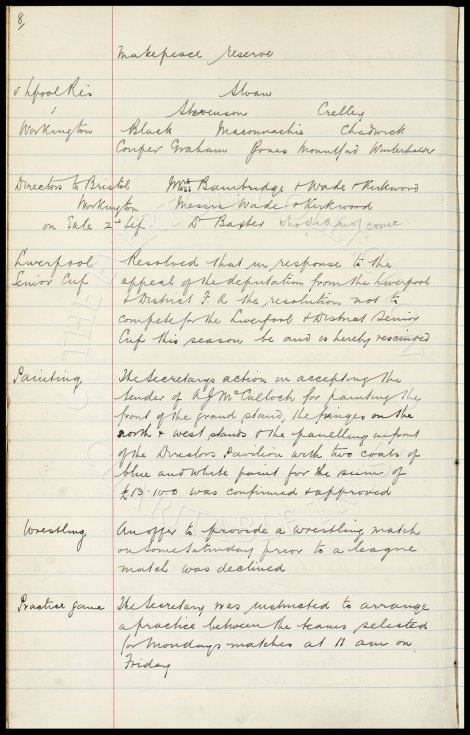 8,
Makepeace reserve
v Lpool Res Sloan
v Stevenson Crelley
Workington Black Maconnachie Chadwick
Couper Graham Jones Mountford Winterhalder
Directors to Bristol Messrs Bainbridge & Wade & Kirkwood
Workington Messrs Wade & Kirkwood
on Eale 2nd Sep Dr Baxter who did not come
Liverpool Resolved that in response to the
Senior Cup appeal of the deputation from the Liverpool
& District F. A the resolution not to
compete for the Liverpool & District Senior
Cup this season be and is hereby rescinded
Painting The Secretarys action in accepting the
tender of A J McCulloch for painting the
front of the grand stand, the fringes on the
north & west stands & the panelling in front
of the Directors Pavilion with two coats of
blue and white paint for the sum of
£13.10.0 was confirmed & approved
Wrestling An offer to provide a wrestling match
on some Saturday prior to a league
match was declined
Practice game The Secretary was instructed to arrange
a practice between the teams selected
for Mondays matches at 11 am on
Friday